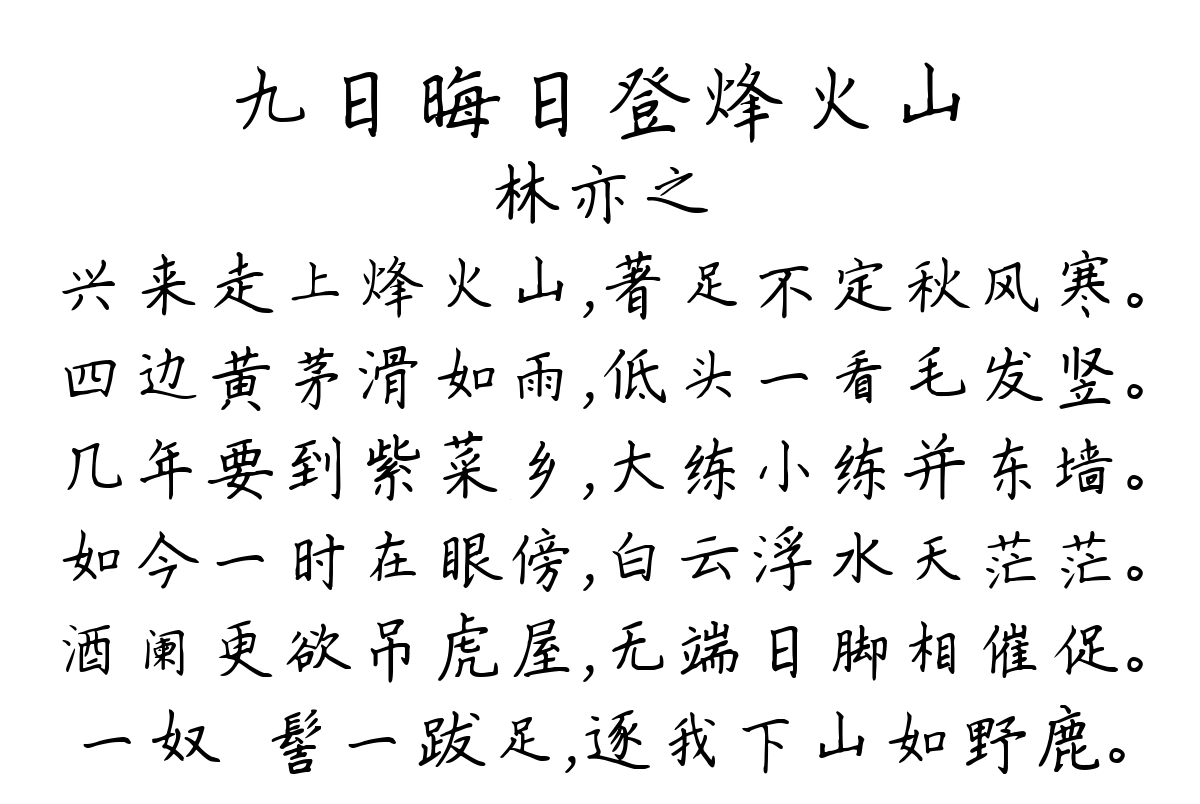 九日晦日登烽火山
林亦之
兴来走上烽火山,著足不定秋风寒。
四边黄茅滑如雨,低头一看毛发竖。
几年要到紫菜乡,大练小练并东墙。
如今一时在眼傍,白云浮水天茫茫。
酒阑更欲吊虎屋,无端日脚相催促。
一奴 髻一跋足,逐我下山如野鹿。